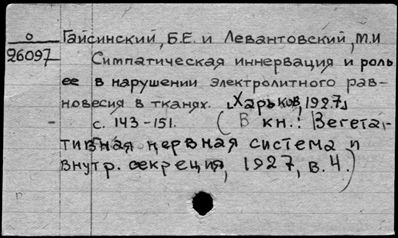 о Гаисинский, Б.Е. и Левантовский, М.И
26097 Симпатическая иннервация и роль
ее в нарушении электролитного рав-
новесия в тканях. „Харьков, 1927„
с. 143-151. (В кн.: Вегета-
тивная нервная система и
внутр. секреция, 1927, в. 4.)